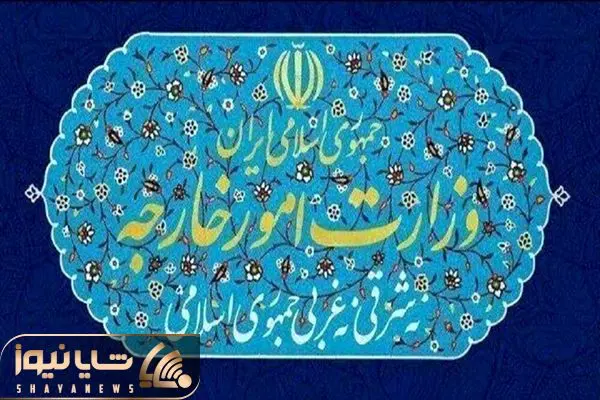 جمهوری اسلامی ایران
وزارت امور خارجه
نه شرقی نه غربی جمهوری اسلامی
شایانیوز
SHAYANEWS